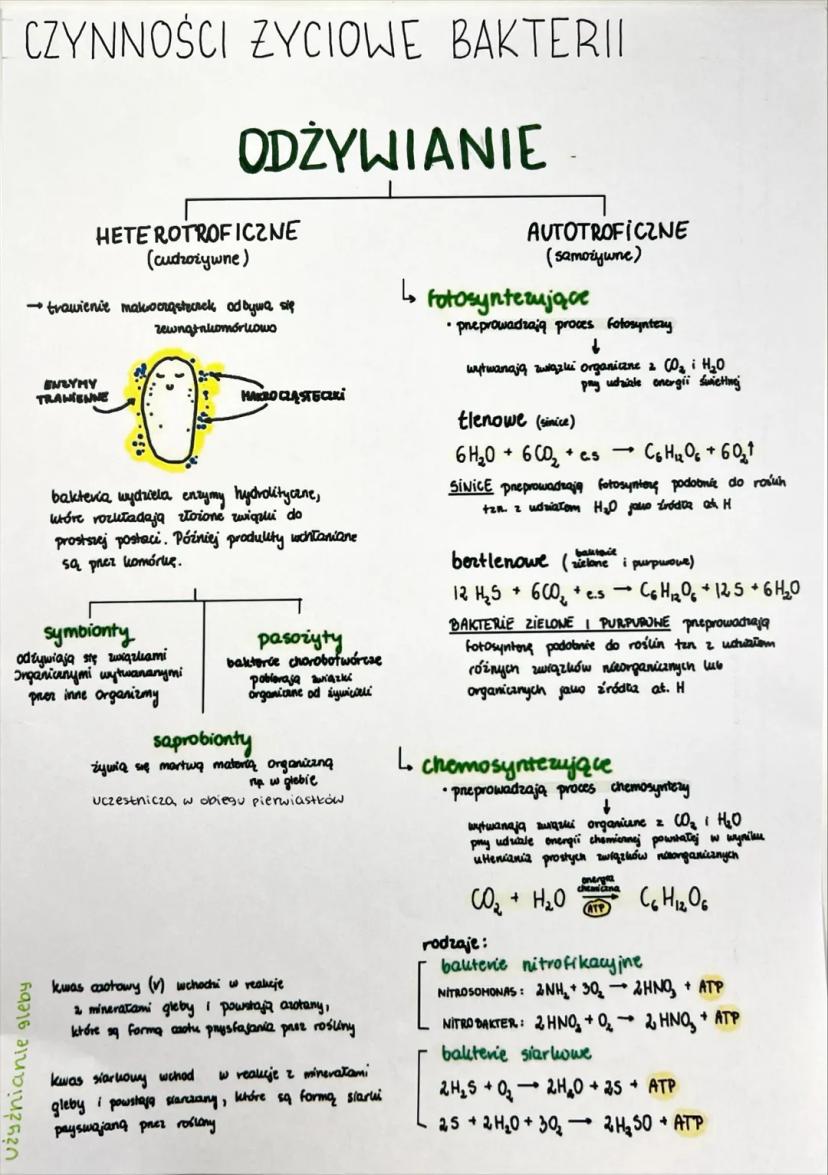 CZYNNOŚCI ŻYCIOWE BAKTERII
ODŻYWIANIE
HETEROTROFICZNE
(cudzożywne)
→ trawienie makrocząsteczek odbywa się
zewnątrzkomórkowo
ENZYMY
TRAWIENNE
MAKROCZĄSTECZKI
bakteria wydziela enzymy hydrolityczne,
które rozkładają złożone związki do
prostszej postaci. Później produkty wchłaniane
są przez komórkę.
symbionty
odżywiają się związkami
organicznymi wytwarzanymi
przez inne organizmy
pasożyty
bakterie chorobotwórcze
pobierają związki
organiczne od żywicieli
saprobionty
żywią się martwą materią organiczną
np. w glebie
uczestniczą w obiegu pierwiastków
AUTOTROFICZNE
(samożywne)
↳ fotosyntezujące
• przeprowadzają proces fotosyntezy
↓
wytwarzają związki organiczne z CO₂ i H₂O
przy udziale energii świetlnej
tlenowe (sinice)
6H₂O + 6CO₂ + e.s → C₆H₁₂O₆ + 6O₂↑
SINICE przeprowadzają fotosyntezę podobnie do roślin
tzn. z udziałem H₂O jako źródła at. H
beztlenowe (bakterie zielone i purpurowe)
12 H₂S + 6CO₂ + e.s → C₆H₁₂O₆ + 12 S + 6H₂O
BAKTERIE ZIELONE I PURPUROWE przeprowadzają
fotosyntezę podobnie do roślin tzn z udziałem
różnych związków nieorganicznych lub
organicznych jako źródła at. H
↳ chemosyntezujące
• przeprowadzają proces chemosyntezy
↓
wytwarzają związki organiczne z CO₂ i H₂O
przy udziale energii chemicznej powstałej w wyniku
utleniania prostych związków nieorganicznych
energia
chemiczna
CO₂ + H₂O → C₆H₁₂O₆
ATP
rodzaje:
bakterie nitrofikacyjne
NITROSOMONAS: 2NH₃ + 3O₂ → 2HNO₂ + ATP
NITROBAKTER: 2HNO₂ + O₂ → 2HNO₃ + ATP
bakterie siarkowe
2H₂S + O₂ → 2H₂O + 2S + ATP
2S + 2H₂O + 3O₂ → 2H₂SO + ATP
Użyźnianie gleby
kwas azotowy (V) wchodzi w reakcje
z minerałami gleby i powstają azotany,
które są formą azotu przysfajania przez rośliny
kwas siarkowy wchod w reakcje z minerałami
gleby i powstają siarczany, które są formą siarki
przyswajaną przez rośliny